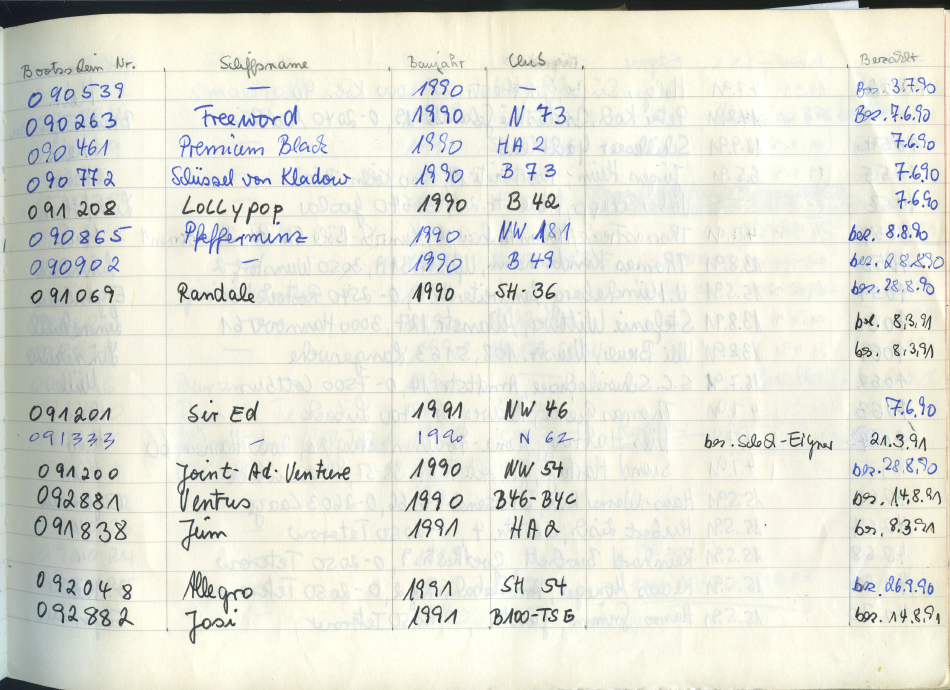 Bootsschein Nr. Schiffsname Baujahr Club Bezahlt
090539 — 1990 — Bez. 3.7.90
090263 Freeword 1990 N 73 Bez. 7.6.90
090461 Premium Black 1990 HA 2 7.6.90
090772 Slüssel von Kladow 1990 B 73 7.6.90
091208 Lollypop 1990 B 42 7.6.90
090865 Pfefferminz 1990 NW 181 bez. 8.8.90
090902 — 1990 B 49 bez. 28.8.90
091069 Randale 1990 SH-36 bez. 28.8.90
bez. 8.3.91
bez. 8.3.91
091201 Sir Ed 1991 NW 46 7.6.90
091333 — 1990 N 62 bez. 21.3.91
091200 Joint-Ad-Venture 1990 NW 54 bez. 28.8.90
092881 Ventus 1990 B46-B4C bez. 14.8.91
091838 Jüm 1991 HA 2 bez. 8.3.91
092048 Allegro 1991 SH 54 bez. 26.9.90
092882 Josi 1991 B100-TSE bez. 14.8.91